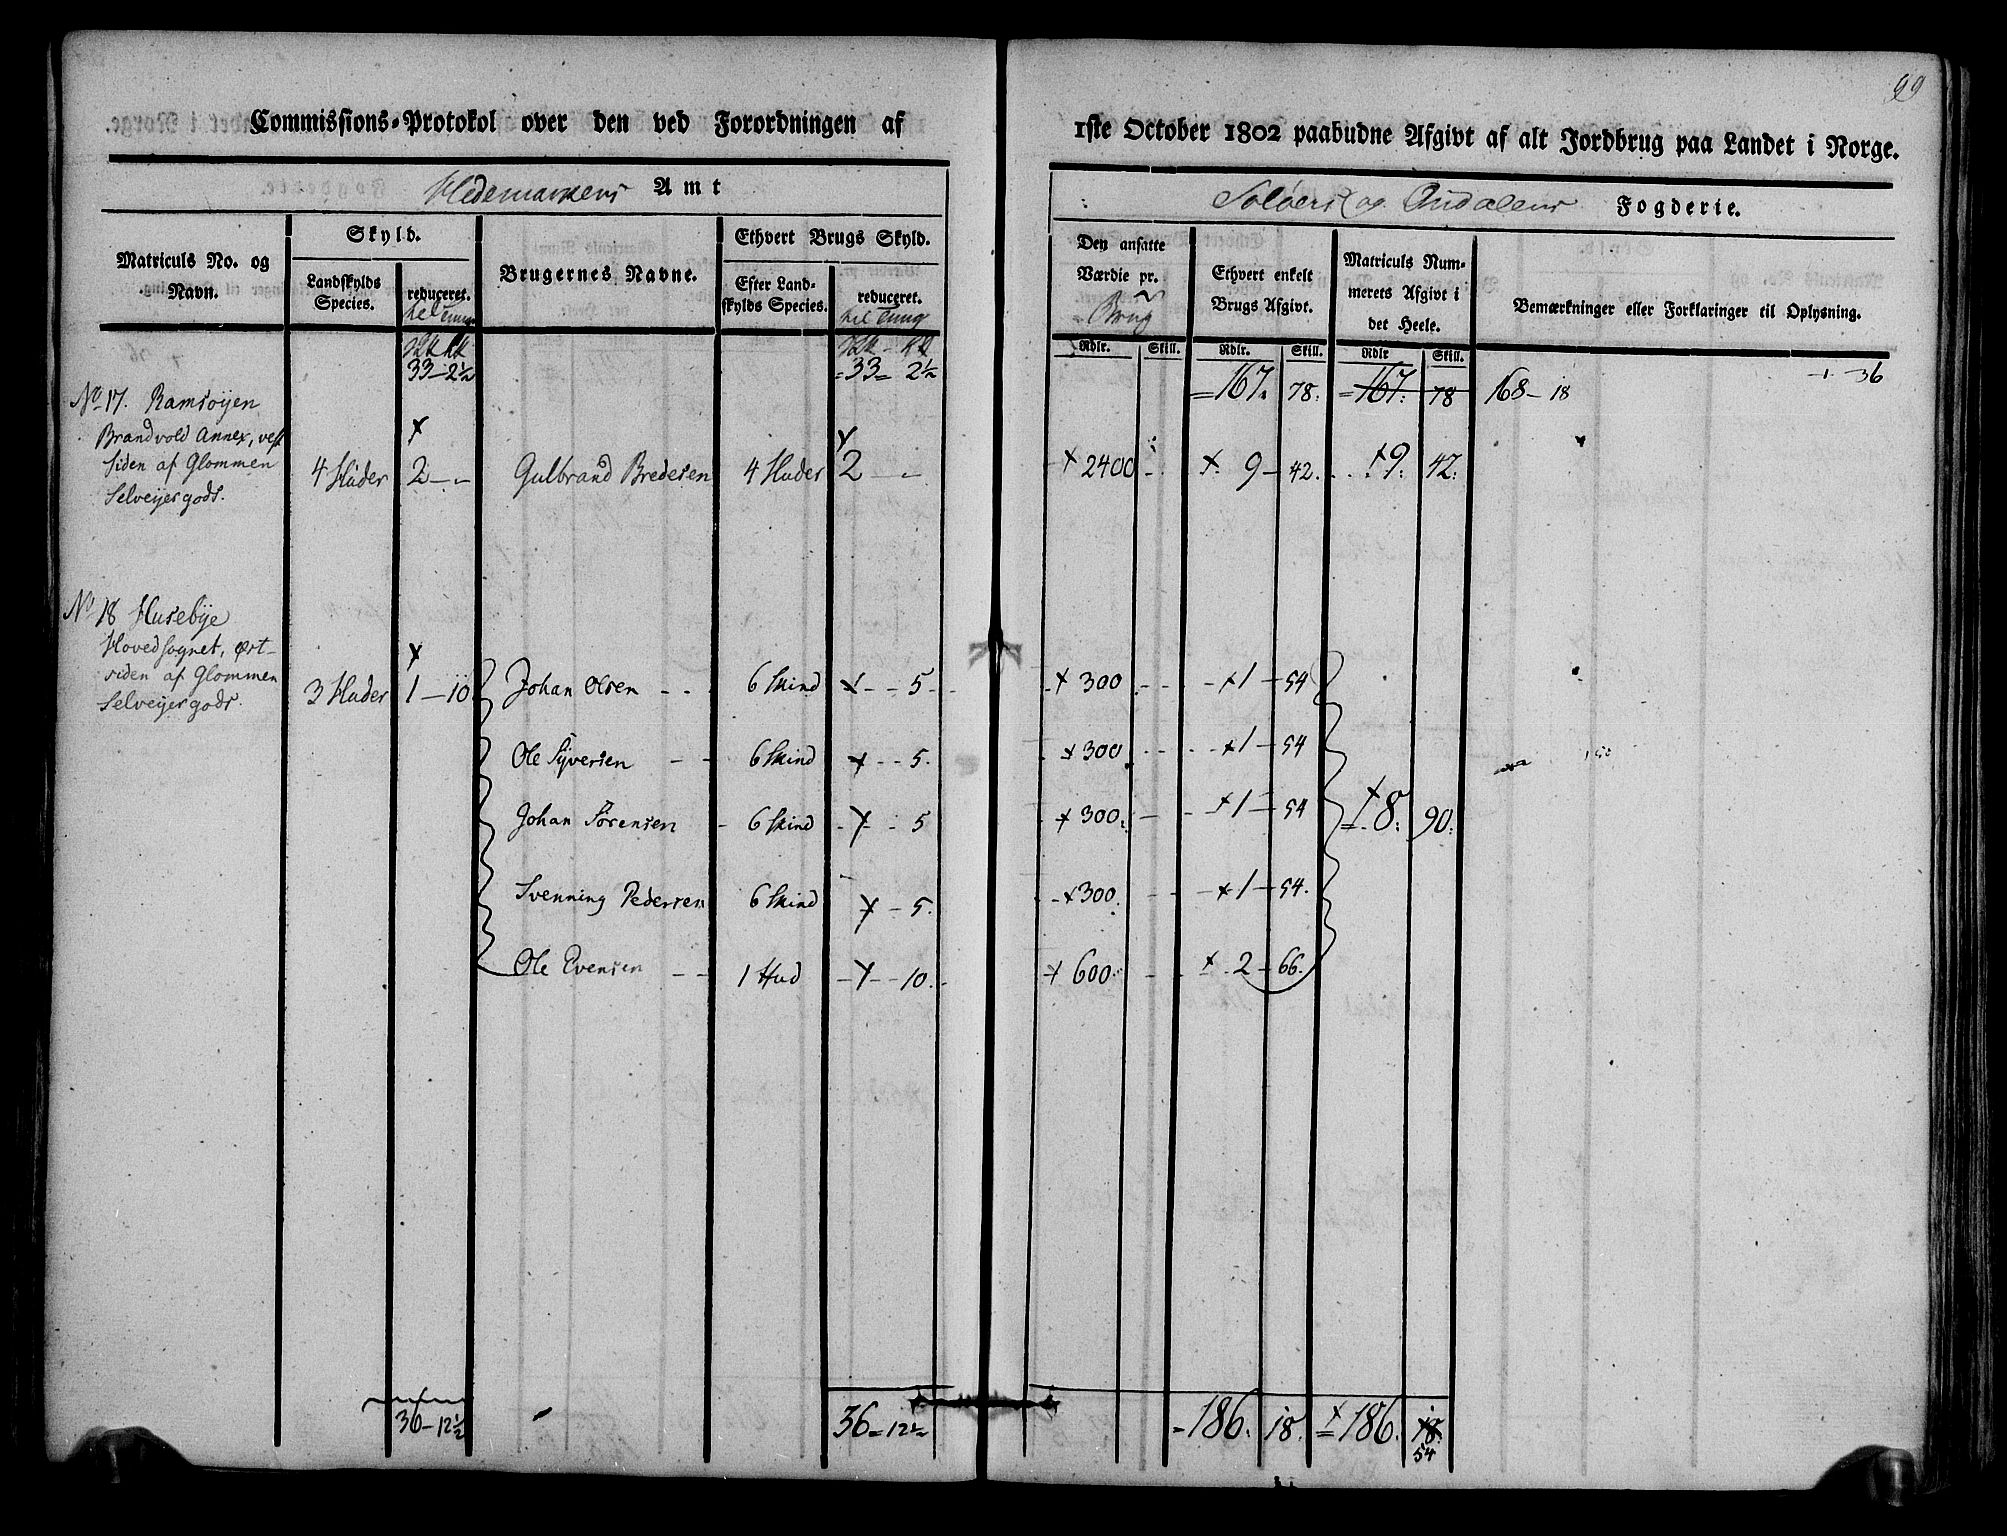 99
Commissions-Protokol over den ved Forordningen af 1ste October 1802 paabudne Afgivt af alt Jordbrug paa Landet i Norge.
Hedemarkens Amt
Soløers og Oudalens Fogderie.
Matriculs No. og Navn.
Skyld.
Landskylds Species.
reduceret.
Brugernes Navne.
Ethvert Brugs Skyld.
Efter Landskylds Species.
reduceret.
Den ansatte Værdie pr. Brug
Ethvert enkelt Brugs Afgivt.
Matriculs Nummerets Afgivt i det Heele.
Bemærkninger eller Forklaringer til Oplysning.
Rdlr. Skill. Rdlr. Skill. Rdlr Skill.
33 – 2½ = 33 = 2½ = 167. 78. = 167. 78 168 – 18
1 36
No 17. Ramsøyen
Brandvold Annex, vest
siden af Glommen
Selveyergods.
4 Huder 2 – „ Gulbrand Bredesen 4 Huder 2 – „ 2400 9 – 42. 9: 42.
No 18 Husebÿe
Hovedsognet, Øst-
siden af Glommen
Selveyergods.
3 Huder 1 – 10 Johan Olsen 6 Skind 5 300 1 – 54
Ole Syversen 6 Skind 5. 300 1 – 54
Johan Sørensen 6 Skind 5 300. 1 – 54 8. 90.
Svenning Pedersen 6 Skind 5. 300. 1 – 54.
Ole Evensen 1 Hud 10. 600. 2 – 66.
36 – 12½ 36 = 12½ 186. 18. 186. 18.
54